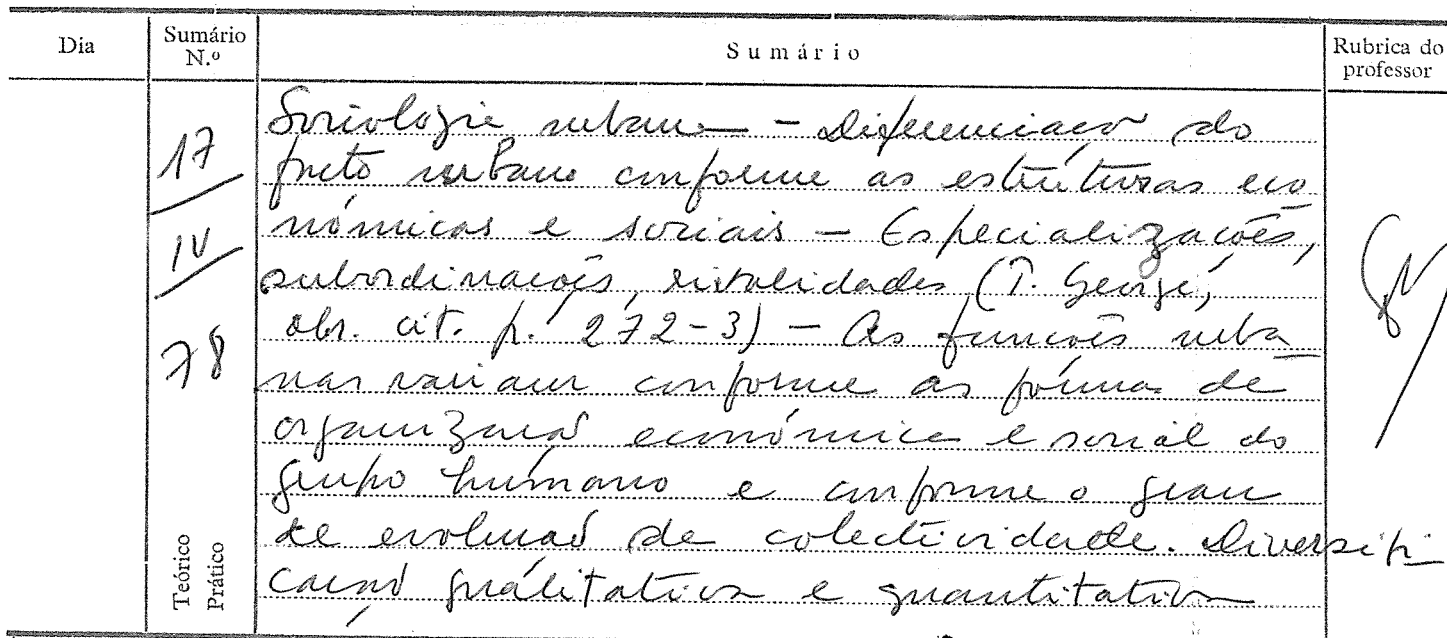 Dia
Sumário N.º
Sumário
Rubrica do professor
17
IV
78
Sociologia urbana - Diferenciação do
facto urbano conforme as estruturas eco
nómicas e sociais - Especializações,
subordinações, rivalidades (P. George,
obr. cit. p. 272-3) - As funções urba
nas variam conforme as formas de
organização económica e social do
grupo humano e conforme o grau
de evolução da colectividade. Diversifi
cação qualitativa e quantitativa
Teórico
Prático